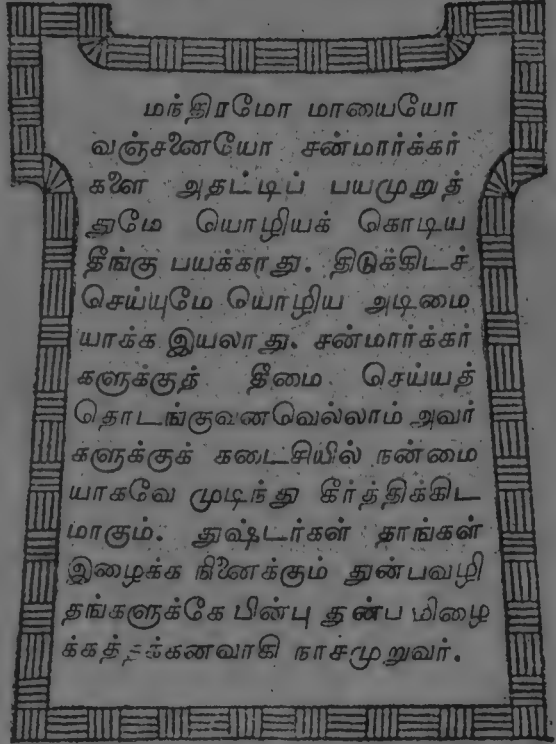 மந்திரமோ மாயையோ
வஞ்சனையோ சன்மார்க்கர்
களை அதட்டிப் பயமுறுத்
துமே யொழியக் கொடிய
தீங்கு பயக்காது. திடுக்கிடச்
செய்யுமே யொழிய அடிமை
யாக்க இயலாது. சன்மார்க்கர்
களுக்குத் தீமை செய்யத்
தொடங்குவனவெல்லாம் அவர்
களுக்குக் கடைசியில் நன்மை
யாகவே முடிந்து கீர்த்திக்கிட
மாகும். துஷ்டர்கள் தாங்கள்
இழைக்க நினைக்கும் துன்பவழி
தங்களுக்கே பின்பு துன்ப மிழை
க்கத்தக்கனவாகி நாசமுறுவர்.